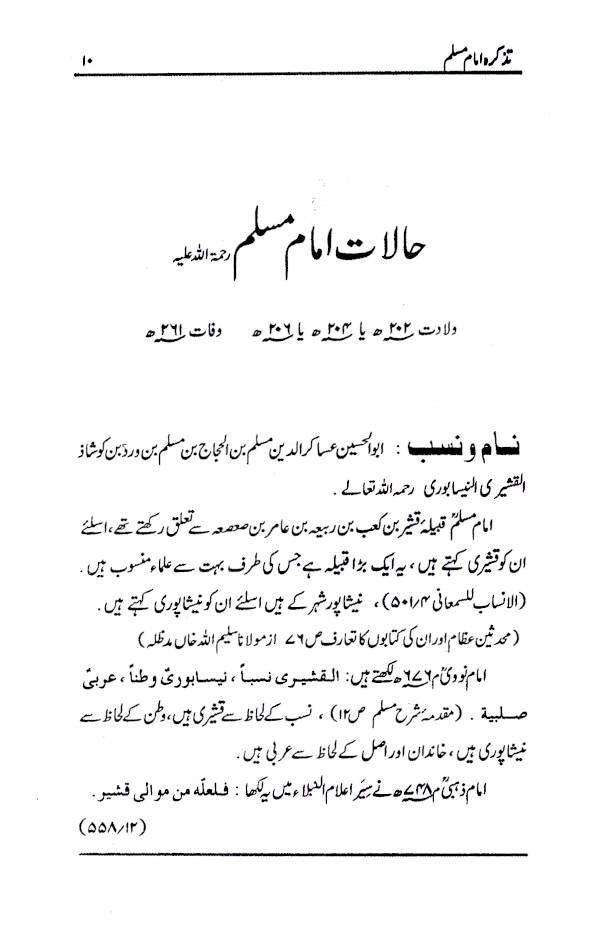 تذکرہ امام مسلم ۱۰
حالات امام مسلم رحمۃ اللہ علیہ
ولادت ۲۰۲ھ یا ۲۰۴ھ یا ۲۰۶ھ وفات ۲۶۱ھ
نام و نسب : ابوالحسین عساکرالدین مسلم بن الحجاج بن مسلم بن ورد بن کوشاذ
القشیری النیسابوری رحمہ اللہ تعالے .
امام مسلمؒ قبیلۂ قشیر بن کعب بن ربیعہ بن عامر بن صعصعہ سے تعلق رکھتے تھے، اسلئے
ان کو قشیری کہتے ہیں ، یہ ایک بڑا قبیلہ ہے جس کی طرف بہت سے علماء منسوب ہیں .
(الانساب للسمعانی ۵۰۱/۴) ، نیشاپور شہر کے ہیں اسلئے ان کو نیشاپوری کہتے ہیں .
(محدثین عظام اور ان کی کتابوں کا تعارف ص ۷۶ از مولانا سلیم اللہ خاں مدظلہ)
امام نوویؒ م ۶۷۶ھ لکھتے ہیں: القشیری نسباً ، نیسابوریٌ وطناً ، عربیٌ
صلبیة . (مقدمۂ شرح مسلم ص۱۲) ، نسب کے لحاظ سے قشیری ہیں، وطن کے لحاظ سے
نیشاپوری ہیں ، خاندان اور اصل کے لحاظ سے عربی ہیں .
امام ذہبیؒ م ۷۴۸ھ نے سیَر اعلام النبلاء میں یہ لکھا : فلعلّه من موالی قشیر .
(۵۵۸/۱۲)